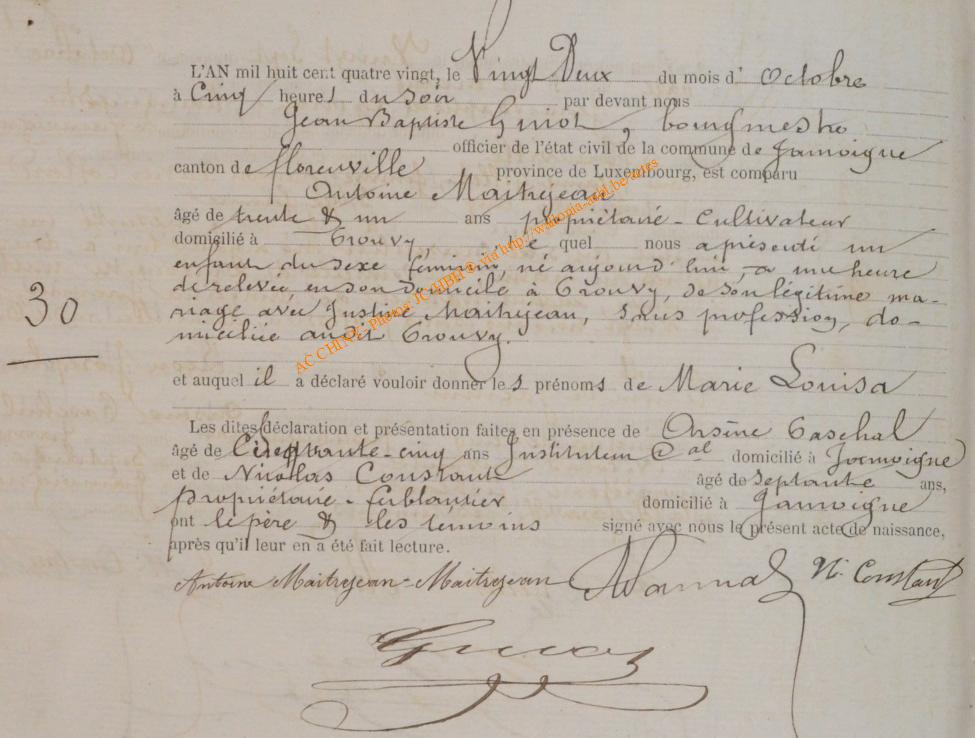 L'AN mil huit cent quatre vingt, le Vingt Deux du mois d' Octobre
à Cinq heures du soir par devant nous
Jean Baptiste Guiot, bourgmestre
officier de l'état civil de la commune de Jamoigne
canton de florenville province de Luxembourg, est comparu
Antoine Maitrejean
âgé de trente & un ans propriétaire - Cultivateur
domicilié à Prouvy, le quel nous a présenté un
enfant du sexe féminin, né aujourd'hui, à une heure
de relevée en son domicile à Prouvy, de son légitime ma-
riage avec Justine Maitrejean, sans profession, do-
miciliée audit Prouvy.
30
et auquel il a déclaré vouloir donner les prénoms de Marie Louisa
Les dites déclaration et présentation faites en présence de Orsène
âgé de cinq ans Instituteur Cal domicilié à Jamoigne
et de Nicolas Constant âgé de septante ans,
propriétaire - ferblantier domicilié à Jamoigne
ont le père & les témoins signé avec nous le présent acte de naissance,
après qu'il leur en a été fait lecture.
Antoine Maitrejean-Maitrejean N. Constant
Guiot
AC CHINY: Photos JCHIBH © via http://wallonia-asbl.be/actes